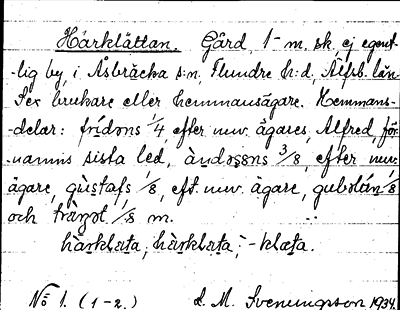 Härklättan. Gård, 1 m. sk, ej egent-
-lig by, i Åsbräcka s:n, Flundre h:d, Älfsb. län.
Sex brukare eller hemmansägare. Hemmans-
-delar: frídons 1/4, efter nuv. ägares, Alfred, för-
-namns sista led, àndosons 3/8, efter nuv.
ägare, gùstafs 1/8, eft. nuv. ägare, 1/8
och 1/8 m.
hàrklæta, hàrklæta, -klæta.
No 1. (1-2.) L. M. Svenungsson 1934.